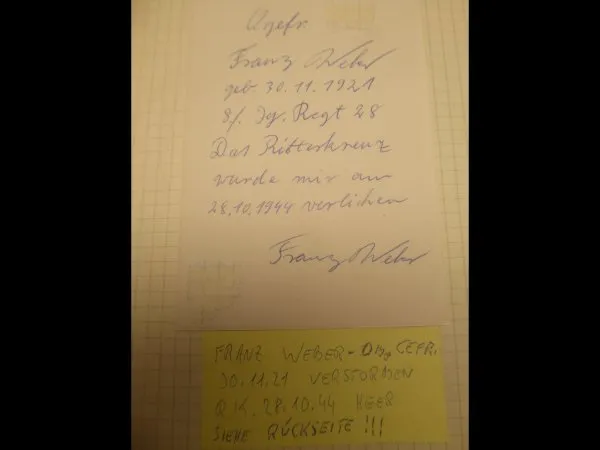 Ogefr.
Franz Weber
geb. 30.11.1921
8/. Jg. Regt 28
Das Ritterkreuz
wurde mir am
28.10.1944 verliehen
Franz Weber
FRANZ WEBER - Obg GEFR.
30.11.21 VERSTORBEN
R.K. 28.10.44 HEER
SIEHE RÜCKSEITE !!!